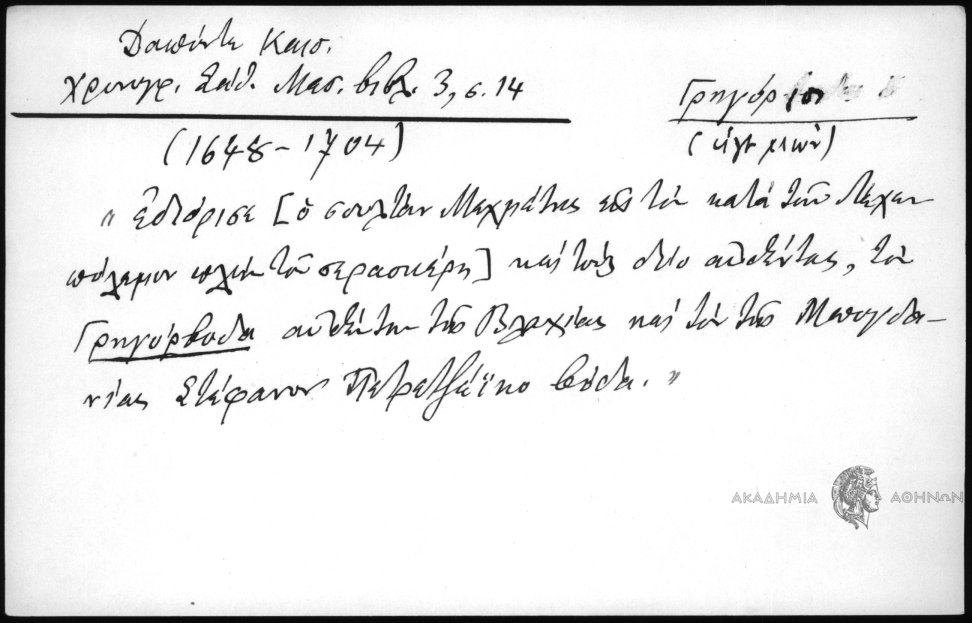 Δαπόντε Καισ.
Χρονογρ. Σάθ. Μεσ. βιβλ. 3, σ. 14
Γρηγόριος
(ἡγεμών)
(1648-1704)
"Ἐδιόρισε [ὁ σουλτάν Μεχμέτης εἰς τὸν κατὰ τῶν Λέχων
πόλεμον πλὴν τοῦ σερασκέρη] καὶ τοὺς δύο αὐθέντας, τὸν
Γρηγόρβοδα αὐθέντην τῆς Βλαχίας καὶ τὸν τῆς Μπογδα-
νίας Στέφανον Πετρετζέϊκο βόδα."
ΑΚΑΔΗΜΙΑ ΑΘΗΝΩΝ